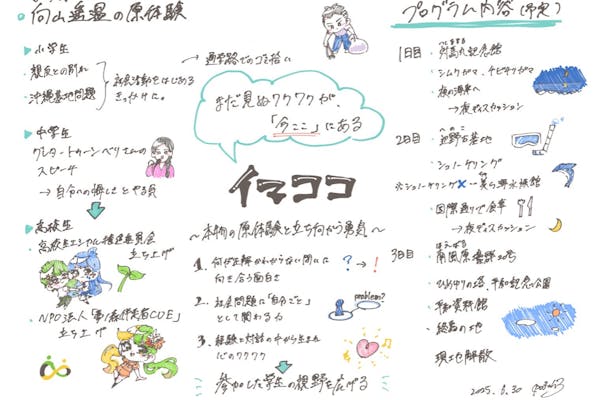 向山遥温の原体験
小学生
・親友との別れ
・沖縄基地問題
社会活動をはじめる
きっかけに。
→通学路でのゴミ拾い
中学生
グレタ・トゥーンベリさんの
スピーチ
→自分への悔しさとやる気
高校生
高校生エシカル推進委員会
立ち上げ
NPO法人
立ち上げ
まだ見ぬワクワクが、
「今ここ」にある
イマココ
〜本物の原体験と立ち向かう勇気〜
1. 何が正解かわからない問いに
向き合う面白さ
? → !
2. 社会問題に「自分ごと」
として関わる力
problem?
3. 経験と対話の中から生まれ
たワクワク
参加した学生の視野を広げる
プログラム内容(予定)
1日目
・対馬丸記念館
・シムクガマ、チビチリガマ
・夜の海岸へ
→夜ディスカッション
2日目
へのこ
・辺野古基地
・シュノーケリング
※シュノーケリング✕…美ら海水族館
・国際通りで食事
→夜ディスカッション
3日目
はえばる
・南風原壕20号
・ひめゆりの塔、平和祈念公園
・平和資料館
・終焉の地
現地解散
2025.6.30